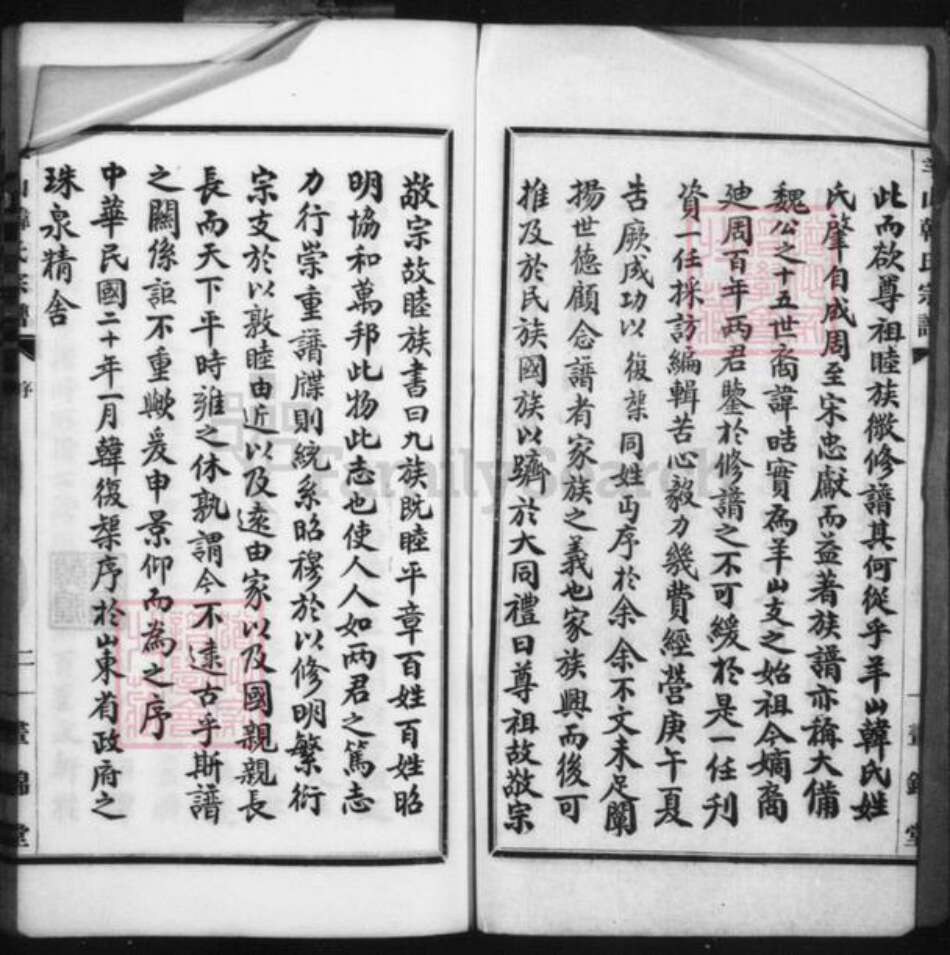 此而欲尊祖睦族微修譜其何從乎羊山韓氏姓
氏肇自成周至宋忠獻而益著族譜亦稱大備
魏公之十五世裔諱晧實為羊山支之始祖今嫡裔
廸周百年兩君鑒於修譜之不可緩於是一任刊
資一任採訪編輯苦心毅力幾費經營庚午夏
告厥成功以復榘同姓丐序於余余不文未足闡
揚世德顧念譜者家族之義也家族興而後可
推及於民族國族以躋於大同禮曰尊祖故敬宗
敬宗故睦族書曰九族既睦平章百姓百姓昭
明協和萬邦此物此志也使人人如兩君之篤志
力行崇重譜牒則統系昭穆於以修明繁衍
宗支於以敦睦由近以及遠由家以及國親親長
長而天下平時雍之休孰謂今不逮古乎斯譜
之關係詎不重歟爰申景仰而為之序
中華民國二十年一月韓復榘序於山東省政府之
珠泉精舍
羊山韓氏宗譜
序
二
晝錦堂
FamilySearch